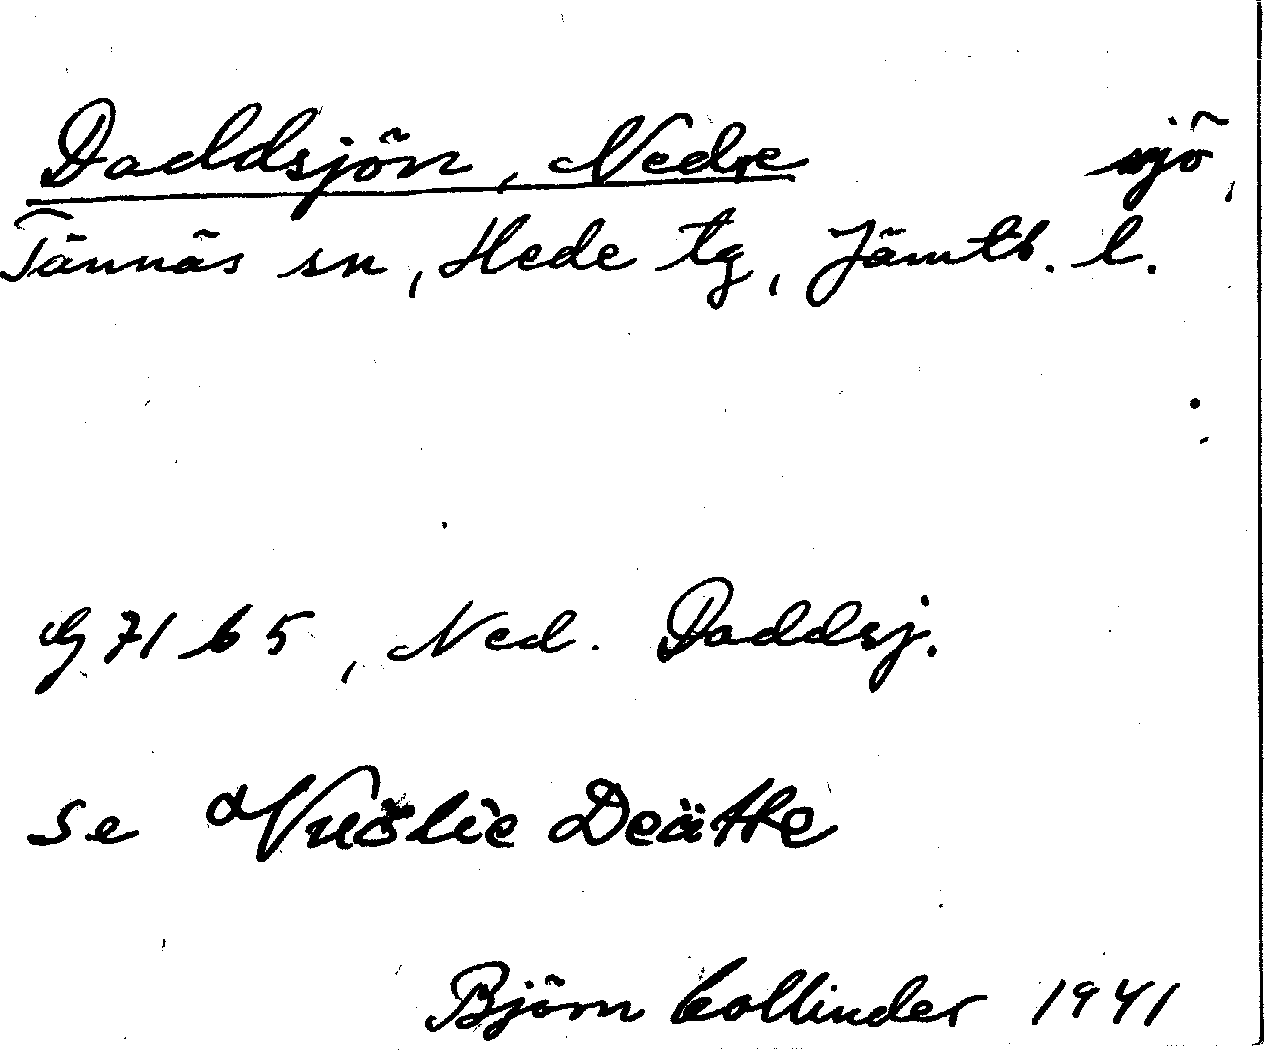 Daddsjön, Nedre sjö,
Tännäs sn, Hede tg, Jämtl. l.
G 71 b 5, Ned. Daddsj.
se Vuölie Deätte
Björn Collinder 1941